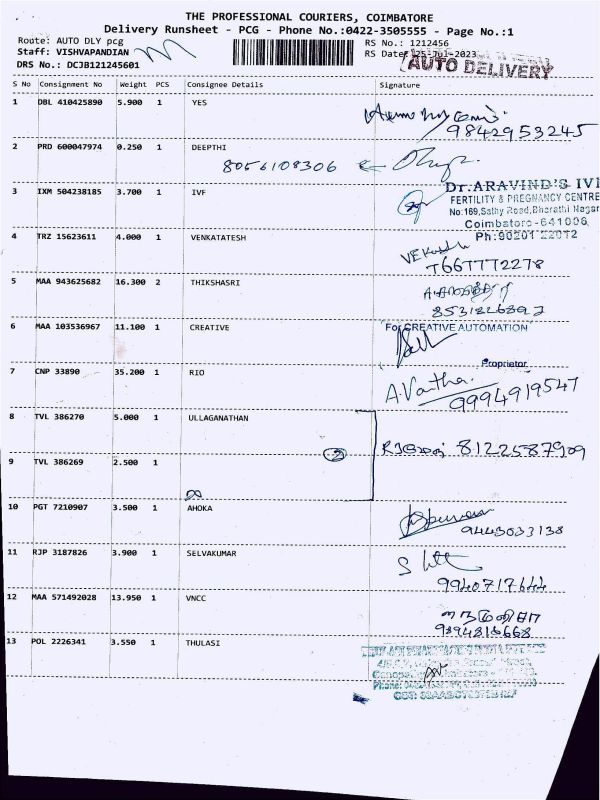 THE PROFESSIONAL COURIERS, COIMBATORE
Delivery Runsheet - PCG - Phone No.:0422-3505555 - Page No.:1
Route: AUTO DLY pcg RS No.: 1212456
Staff: VISHVAPANDIAN RS Date: 25-Jul-2023
AUTO DELIVERY
DRS No.: DCJB121245601
S No Consignment No Weight PCS Consignee Details Signature
1 DBL 410425890 5.900 1 YES
9842953245
2 PRD 600047974 0.250 1 DEEPTHI
8056108306
3 IXM 504238185 3.700 1 IVF
Dr.ARAVIND'S IVF
FERTILITY & PREGNANCY CENTRE
No:169,Sathy Road,Bharathi Nagar
Coimbatore-641006,
Ph:90201 22012
4 TRZ 15623611 4.000 1 VENKATATESH
7667772278
5 MAA 943625682 16.300 2 THIKSHASRI
8531826892
6 MAA 103536967 11.100 1 CREATIVE
For CREATIVE AUTOMATION
Proprietor
7 CNP 33890 35.200 1 RIO
A.Vantha
9994919547
8 TVL 386270 5.000 1 ULLAGANATHAN
8122587909
9 TVL 386269 2.500 1
10 PGT 7210907 3.500 1 AHOKA
9443033138
11 RJP 3187826 3.900 1 SELVAKUMAR
9940717644
12 MAA 571492028 13.950 1 VNCC
9394816668
13 POL 2226341 3.550 1 THULASI